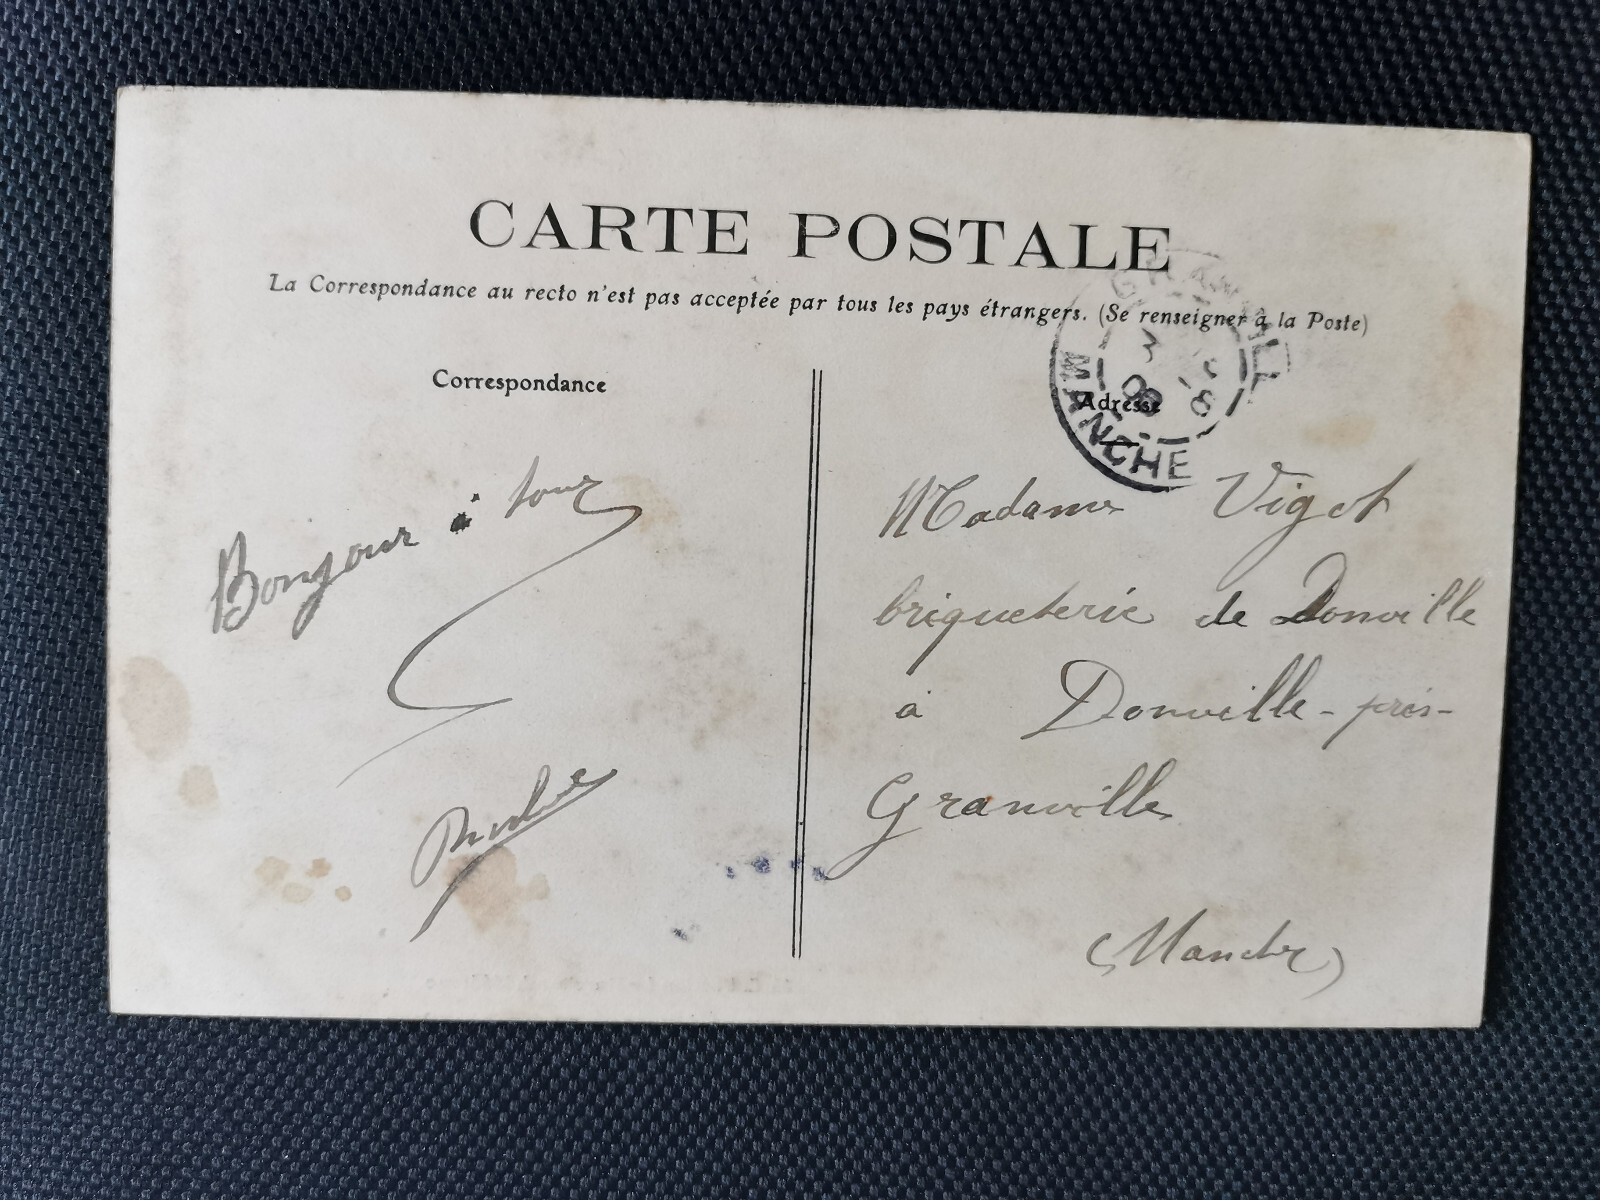 CARTE POSTALE
La Correspondance au recto n'est pas acceptée par tous les pays étrangers. (Se renseigner à la Poste)
Correspondance
Adresse
MANCHE
Bonjour à tous
Madame Vigot
briqueterie de Donville
à Donville-près-
Granville
(Manche)